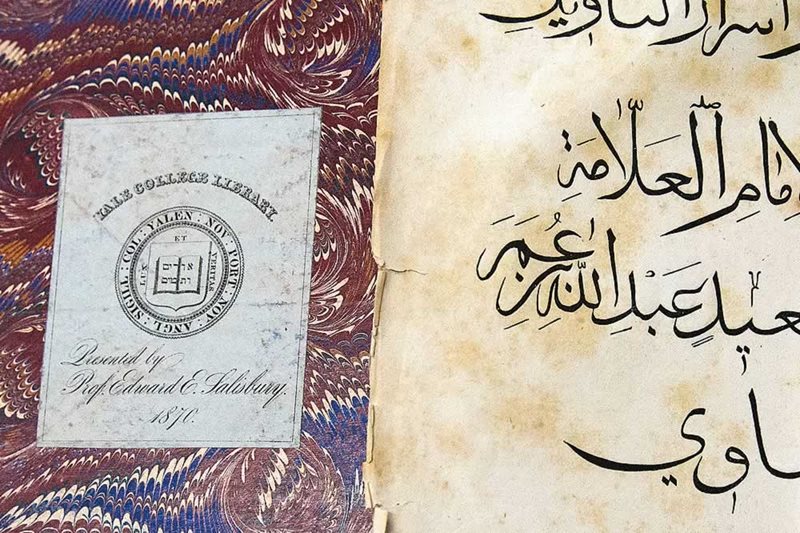 YALE COLLEGE LIBRARY.
SIGILL : COL : YALEN : NOV : PORT : NOV : ANGL :
LUX ET VERITAS
אורים
ותמים
Presented by
Prof. Edward E. Salisbury.
1870.
اسرار التاويل
مامِ العلّامةِ
عيدٍ عَبْدِ اللهِ بن عُمَرَ
اوي